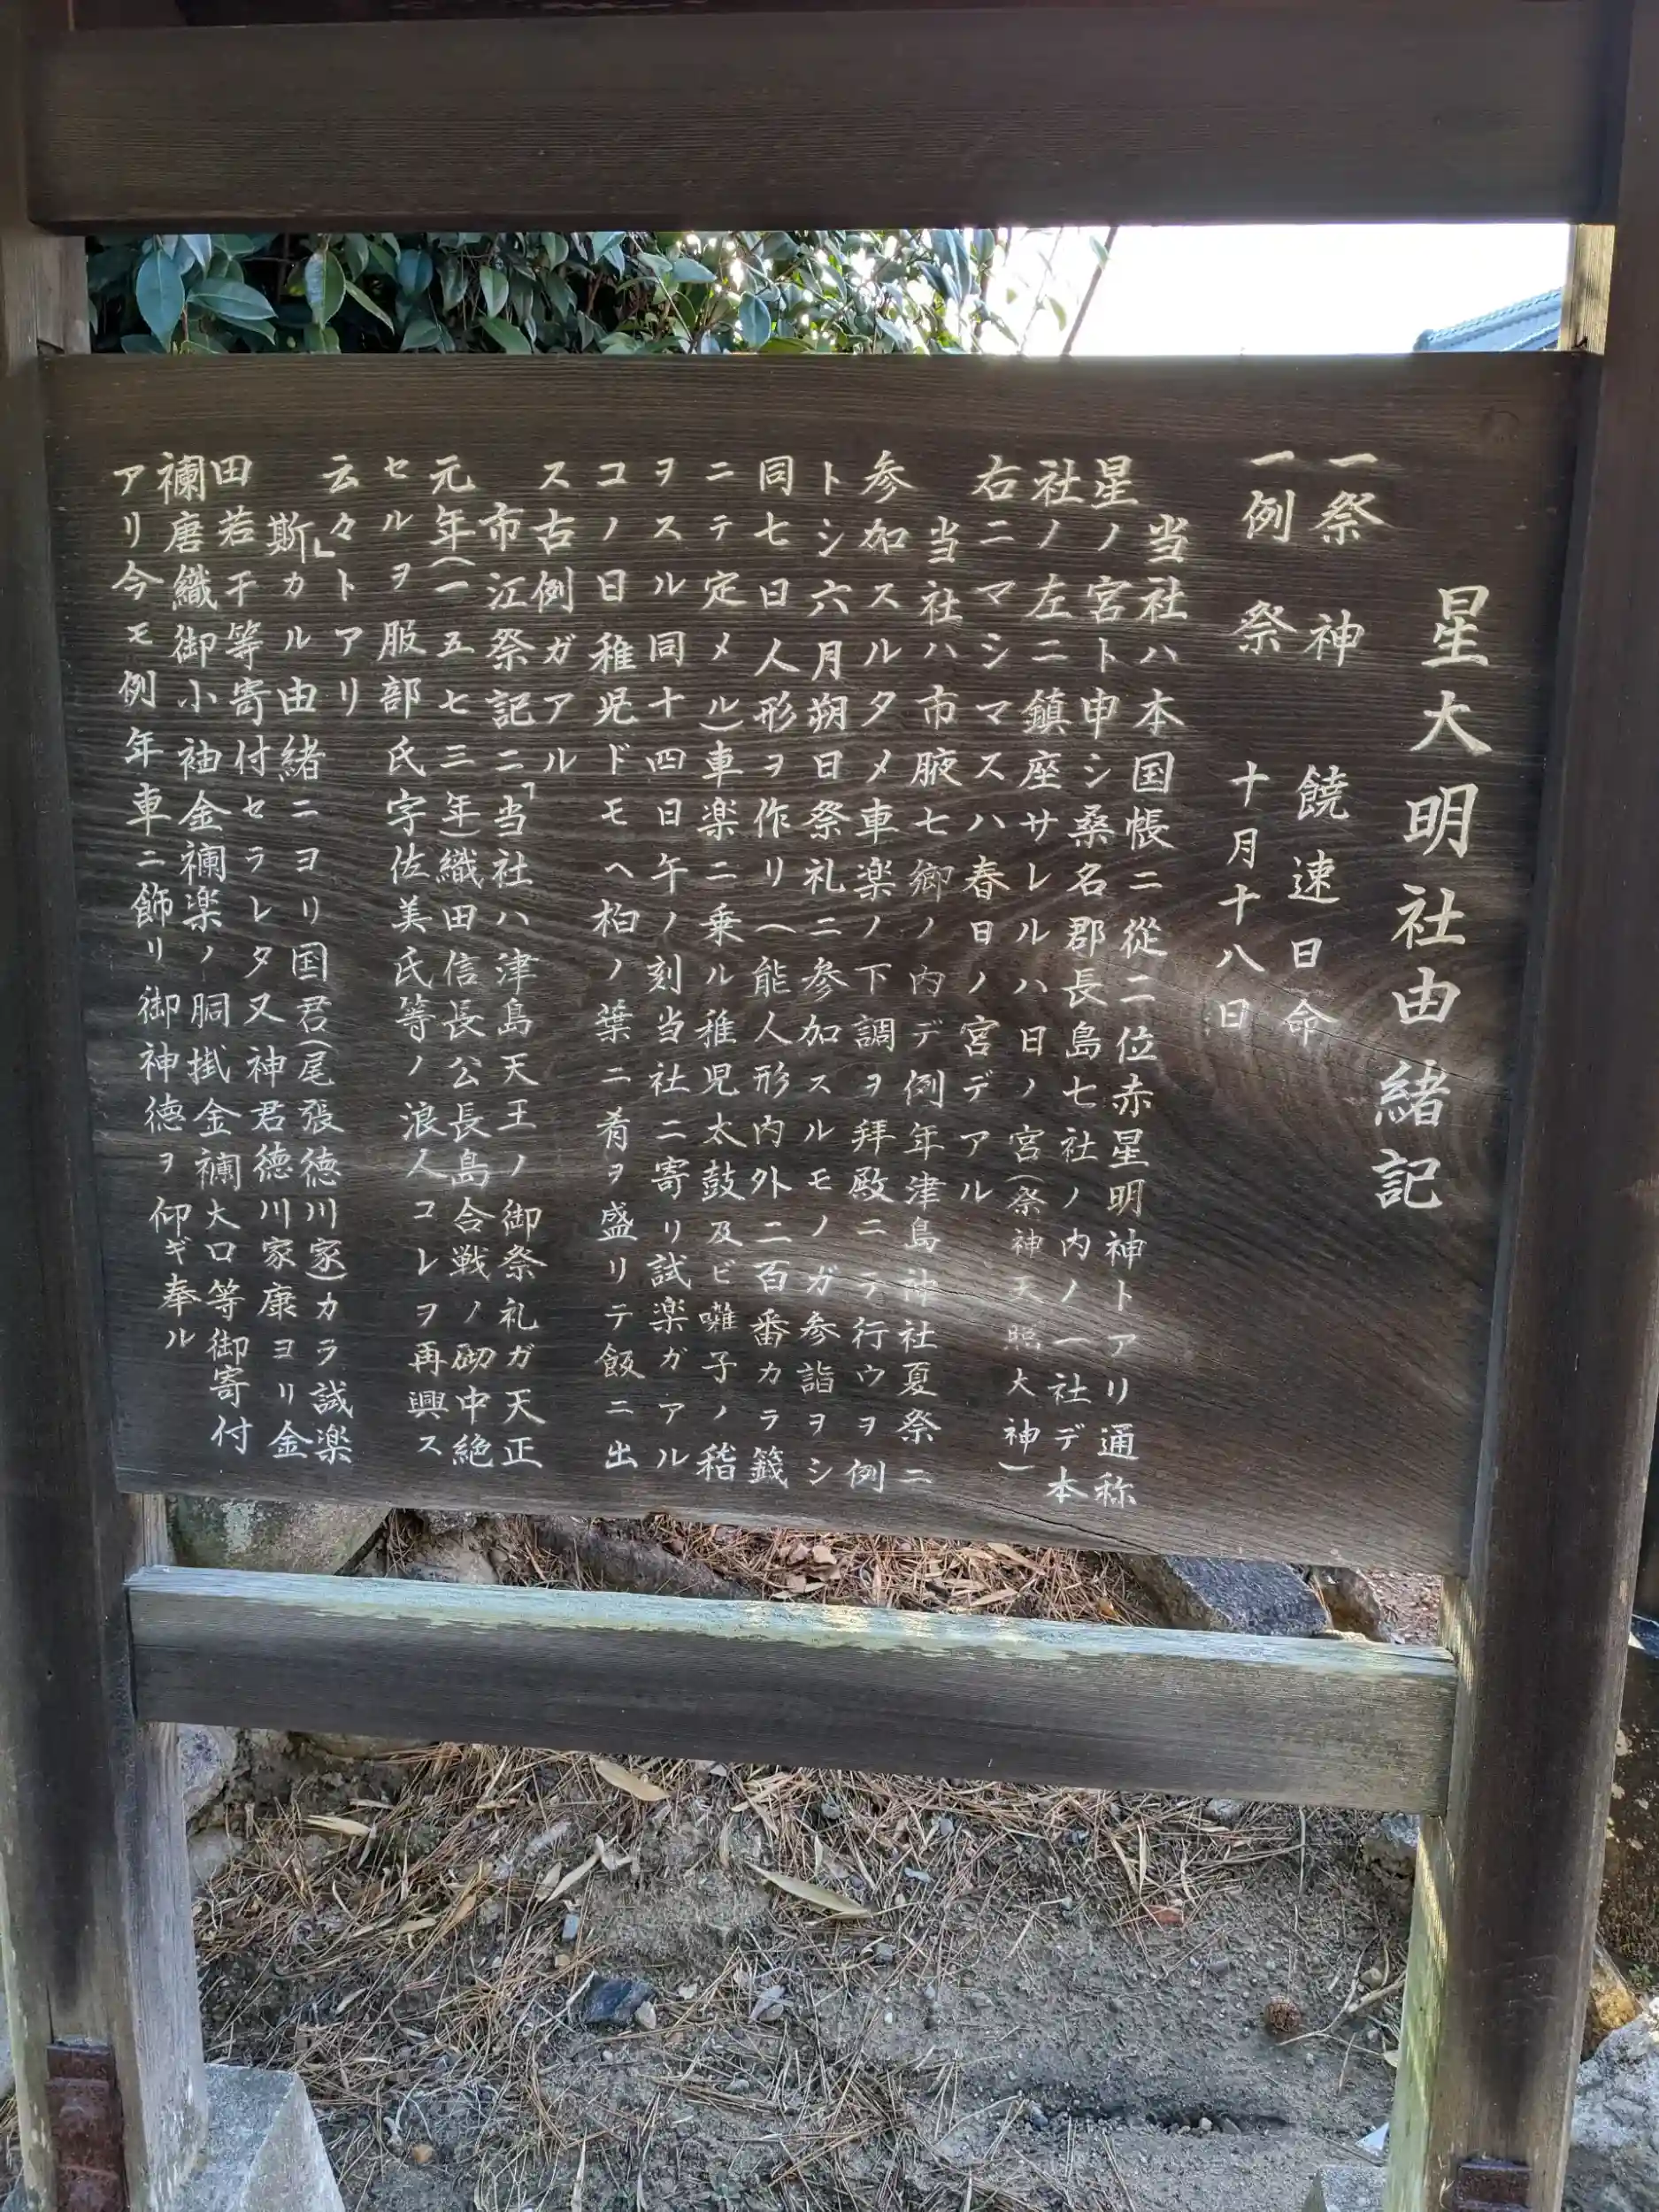 星大明社由緒記
一祭　神　饒速日命
一例　祭　十月十八日
当社ハ本国帳ニ從二位赤星明神トアリ通称
星ノ宮ト申シ桑名郡長島七社ノ内ノ一社デ本
社ノ左ニ鎮座サレルハ日ノ宮(祭神天照大神)
右ニマシマスハ春日ノ宮デアル
当社ハ市腋七郷ノ内デ例年津島神社夏祭ニ
参加スルタメ車楽ノ下調ヲ拜殿ニテ行ウヲ例
トシ六月朔日祭礼ニ参加スルモノガ参詣ヲシ
同七日人形ヲ作リ(能人形内外二百番カラ籤
ニテ定メル)車楽ニ乗ル稚児太鼓及ビ囃子ノ稽
ヲスル同十四日午ノ刻当社ニ寄リ試楽ガアル
コノ日稚児ドモヘ柏ノ葉ニ肴ヲ盛リテ飯ニ出
ス古例ガアル
市江祭記ニ「当社ハ津島天王ノ御祭礼ガ天正
元年(一五七三年)織田信長公長島合戦ノ砌中絶
セルヲ服部氏宇佐美氏等ノ浪人コレヲ再興ス
云々」トアリ
斯カル由緒ニヨリ国君(尾張徳川家)カラ試楽
田若干等寄付セラレタ又神君徳川家康ヨリ金
襴唐織御小袖金襴楽ノ胴掛金襴大口等御寄付
アリ今モ例年車ニ飾リ御神徳ヲ仰ギ奉ル